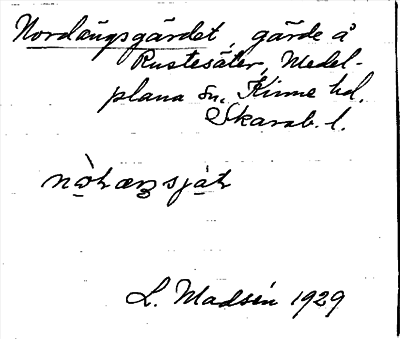 Nordängsgärdet, gärde å
Rustesäter, Medel-
plana sn, Kinne hd,
Skarab. l.
L. Madsén 1929